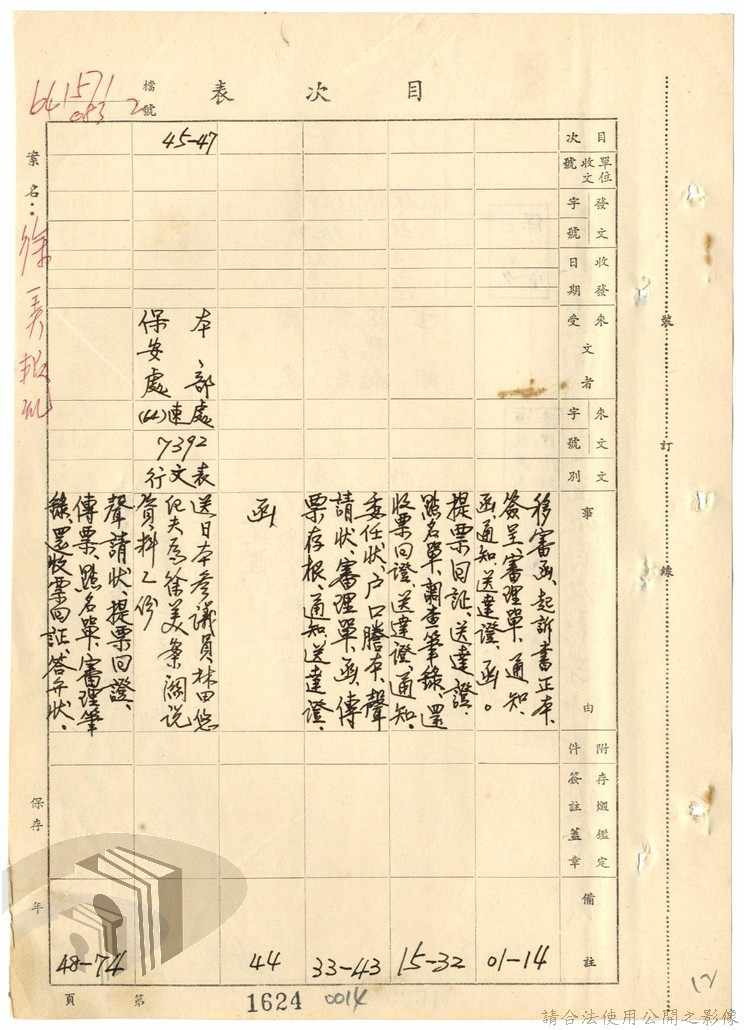 目次表
檔號
1571
641
083 2
案名：徐美叛亂
目次
單位收文號
發文字號
收發日期
來文受文者
來文字號
文別
事由
附件
存燬鑑定簽註蓋章
備註
移審函、起訴書正本、
簽呈、審理單、通知、
函、通知、送達證、函。
01-14
提票回証、送達證、
點名單、調查筆錄、還
收票回證、送達證、通知、
15-32
委任狀、戶口謄本、聲
請狀、審理單、函、傳
票存根、通知、送達證、
33-43
函
44
45-47
本部處
保安處
(64)速
7392
表
行文
送日本參議員林田悠
紀夫為徐美案關說
資料乙份
聲請狀、提票回證、
傳票、點名單、審理筆
錄、還收票回証、答弁狀、
48-74
裝訂線
保存 年
第 頁
1624
0014
12
請合法使用公開之影像